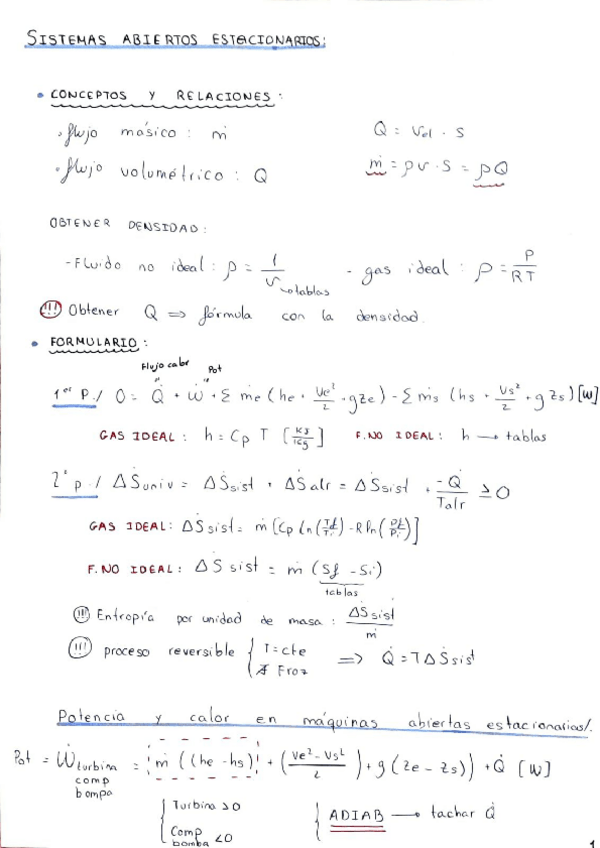 SISTEMAS ABIERTOS ESTACIONARIOS:
• CONCEPTOS Y RELACIONES:
· flujo másico: ṁ    Q = vel · S
· flujo volumétrico: Q    ṁ = ρv · S = ρQ
OBTENER DENSIDAD:
- Fluido no ideal: ρ = 1/v → tablas    - gas ideal: ρ = P/RT
(!!!) Obtener Q ⇒ fórmula con la densidad.
• FORMULARIO:
Flujo calor    Pot
1er P./ 0 = Q̇ + Ẇ + Σ ṁe (he + Ve²/2 + gze) - Σ ṁs (hs + Vs²/2 + gzs) [W]
GAS IDEAL: h = Cp T [KJ/Kg]    F. NO IDEAL: h → tablas
2º p./ ΔṠuniv = ΔṠsist + ΔṠalr = ΔṠsist + -Q̇/Talr ≥ 0
GAS IDEAL: ΔṠsist = ṁ [Cp ln(Tf/Ti) - R ln(Pf/Pi)]
F. NO IDEAL: ΔṠsist = ṁ (Sf - Si)
tablas
(!!!) Entropía por unidad de masa: ΔṠsist/ṁ
(!!!) proceso reversible { T = cte    ⇒ Q̇ = TΔṠsist
∄ Froz
Potencia y calor en máquinas abiertas estacionarias/.
Pot = Ẇturbina = ṁ ((he - hs) + (Ve² - Vs²/2) + g (ze - zs)) + Q̇ [W]
comp
bompa
{ Turbina > 0    { ADIAB → tachar Q̇
Comp
bomba < 0
1